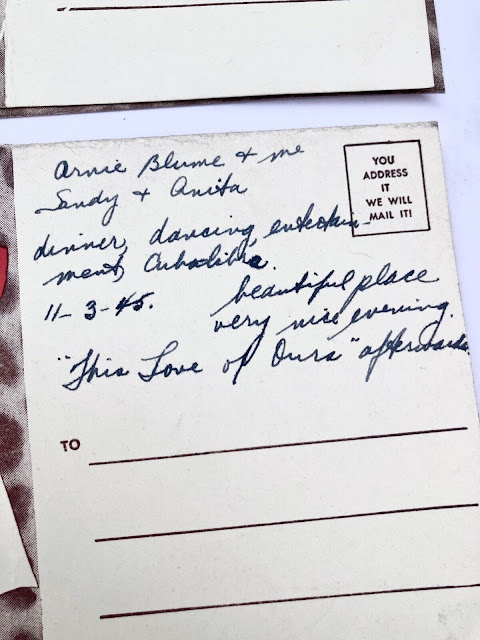 Arnie Blume + me
Sandy + Anita
dinner, dancing, entertain-
ment, Cubalibre.
11-3-45.
beautiful place
very nice evening.
"This Love of Ours" afterwards.
YOU
ADDRESS
IT
WE WILL
MAIL IT!
TO